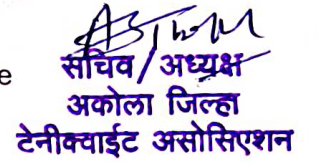 e
सचिव/अध्यक्ष
अकोला जिल्हा
टेनीक्वाईट असोसिएशन